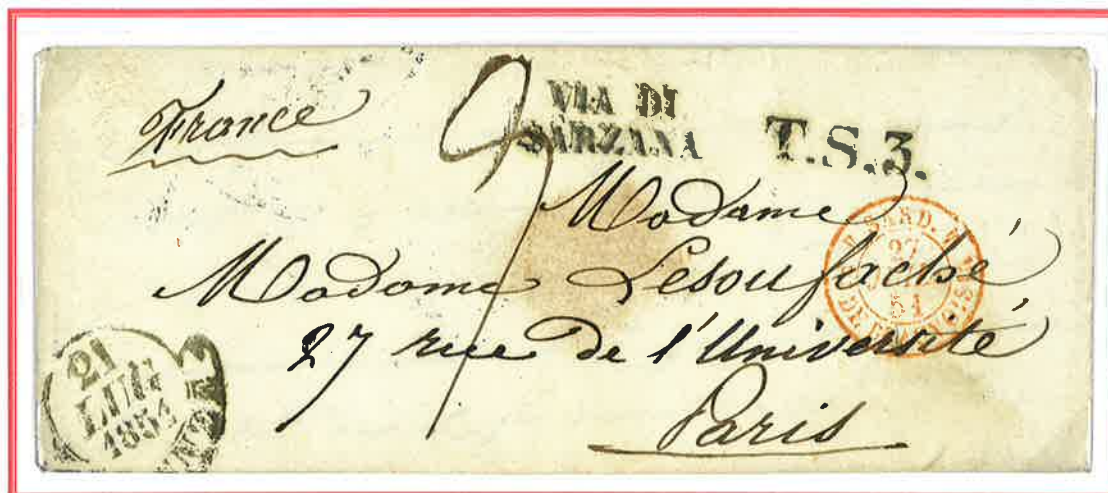 France
VIA DI
SARZANA
T.S.3.
Madame
Madame Lesoufaché
27 rue de l'Université
Paris
SARD.
27
51
21
LUG
1851